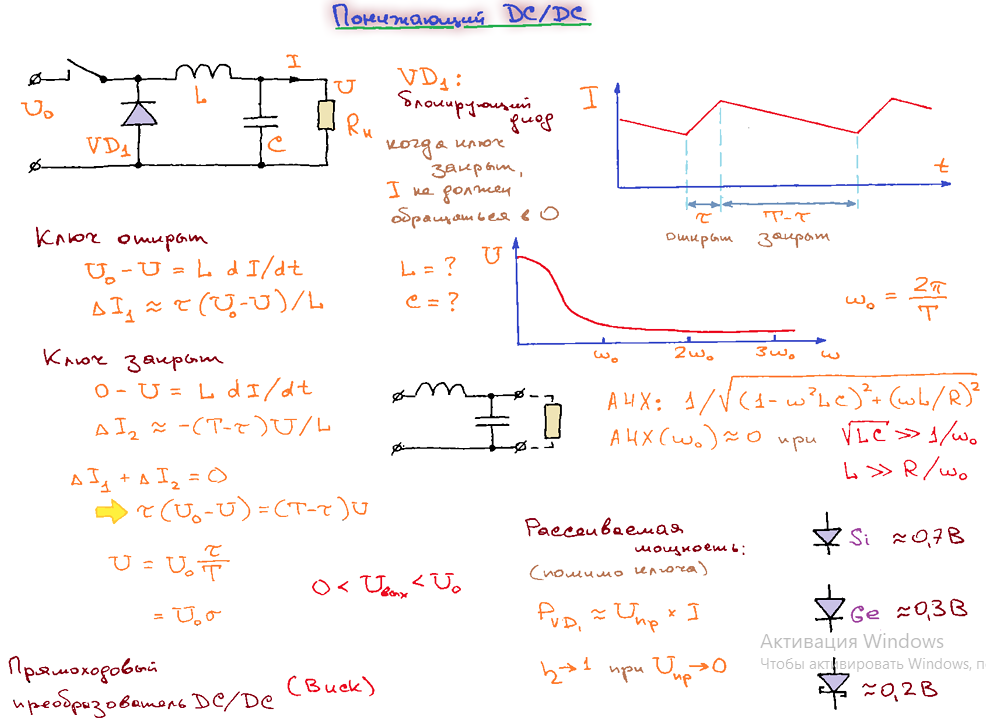 Понижающий DC/DC
I
U
U₀
L
VD₁
C
Rн
VD₁:
блокирующий
диод
когда ключ
закрыт,
I не должен
обращаться в 0
I
t
τ
T-τ
открыт
закрыт
Ключ открыт
U₀ - U = L dI/dt
ΔI₁ ≈ τ(U₀-U)/L
L = ?
C = ?
U
ω₀
2ω₀
3ω₀
ω
ω₀ = 2π/T
Ключ закрыт
0 - U = L dI/dt
ΔI₂ ≈ -(T-τ)U/L
АЧХ: 1/√((1-ω²LC)²+(ωL/R)²)
АЧХ(ω₀)≈0 при √LC ≫ 1/ω₀
L ≫ R/ω₀
ΔI₁ + ΔI₂ = 0
⇒ τ(U₀-U)=(T-τ)U
U = U₀ τ/T
= U₀σ
0 < Uвых < U₀
Рассеиваемая
мощность:
(помимо ключа)
P_VD₁ ≈ Uпр × I
η→1 при Uпр→0
Si ≈0,7В
Ge ≈0,3В
≈0,2В
Активация Windows
Чтобы активировать Windows, п
Прямоходовый
преобразователь DC/DC (Buck)